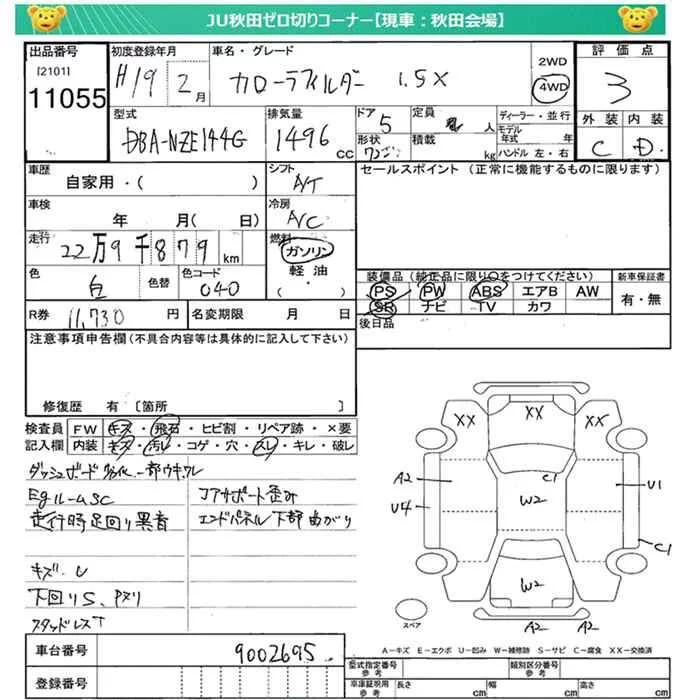 JU秋田ゼロ切りコーナー【現車：秋田会場】
出品番号 [2101] 11055
初度登録年月 H19 2月
車名・グレード カローラフィルダー 1.5X
2WD 4WD
評価点 3
外装 内装 C D
型式 DBA-NZE144G
排気量 1496 cc
ドア 5 定員 人
形状 ワゴン 積載 kg
ディーラー・並行
モデル年式 年
ハンドル 左・右
車歴 自家用・( )
シフト A/T
セールスポイント (正常に機能するものに限ります)
車検 年 月( 日)
冷房 A/C
走行 22万9千879km
燃料 ガソリン 軽油・( )
色 白 色替 色コード 040
装備品 (純正品に限り○をつけてください) 新車保証書
PS PW ABS エアB AW 有・無
SR ナビ TV カワ
R券 11,730円 名変期限 月 日
後日品
注意事項申告欄(不具合内容等は具体的に記入して下さい)
修復歴 有 〔箇所 〕
検査員記入欄
FW キズ・飛石・ヒビ割・リペア跡・×要
内装 キズ・汚レ・コゲ・穴・スレ・キレ・破レ
ダッシュボード 一部ウキ
EgルームSC コアサポート歪み
走行時足回り異音 エンドパネル下部曲がり
キズ・U
下回りS、Pヌリ
スタッドレスT
車台番号 9002695
登録番号
XX XX XX
A2 C1 U1
U4 W2
C1
W2
スペア A2 A2
A－キズ E－エクボ U－凹み W－補修跡 S－サビ C－腐食 XX－交換済
型式指定番号 参考 類別区分番号 参考
車庫証明用 参考 長さ cm 幅 cm 高さ cm